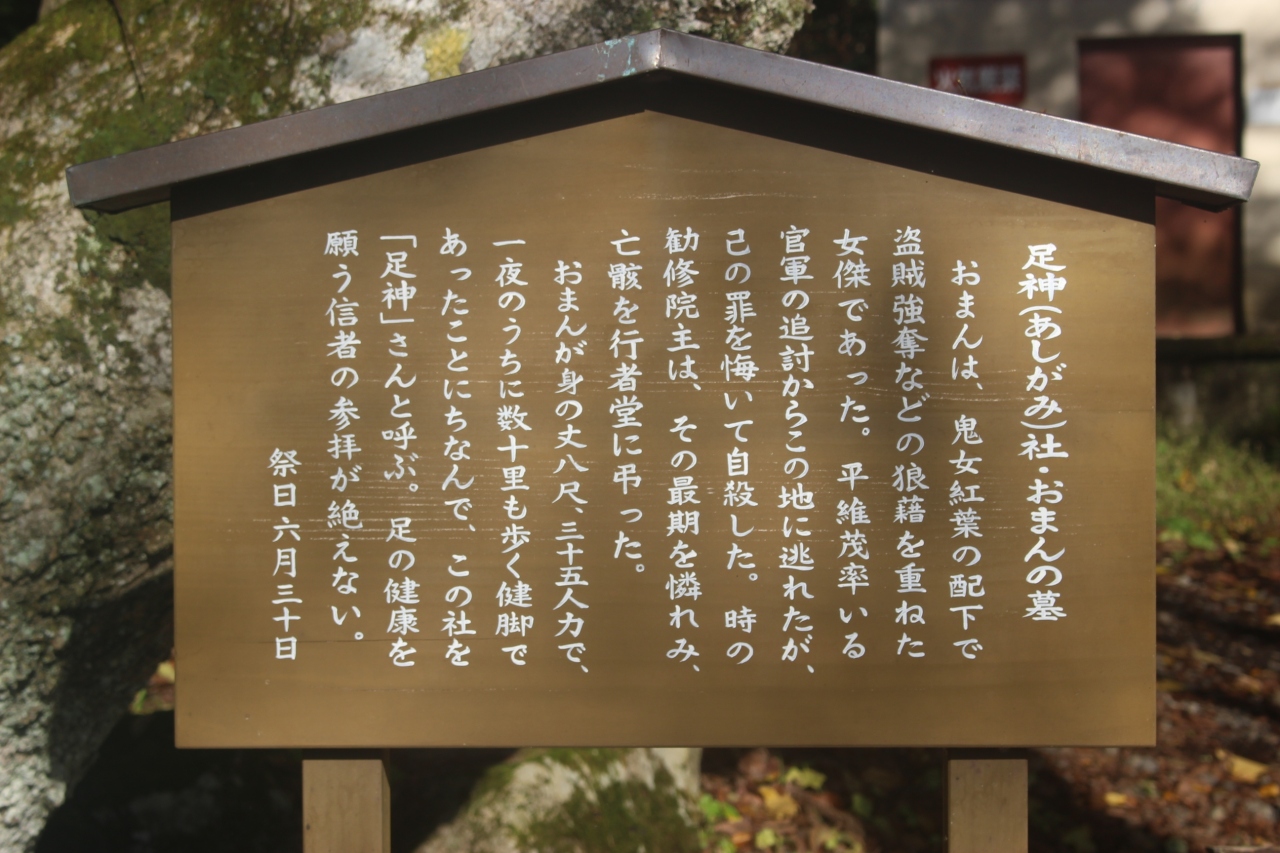 足神(あしがみ)社・おまんの墓
おまんは、鬼女紅葉の配下で
盗賊強奪などの狼藉を重ねた
女傑であった。平維茂率いる
官軍の追討からこの地に逃れたが、
己の罪を悔いて自殺した。時の
勧修院主は、その最期を憐れみ、
亡骸を行者堂に弔った。
おまんが身の丈八尺、三十五人力で、
一夜のうちに数十里も歩く健脚で
あったことにちなんで、この社を
「足神」さんと呼ぶ。足の健康を
願う信者の参拝が絶えない。
祭日六月三十日